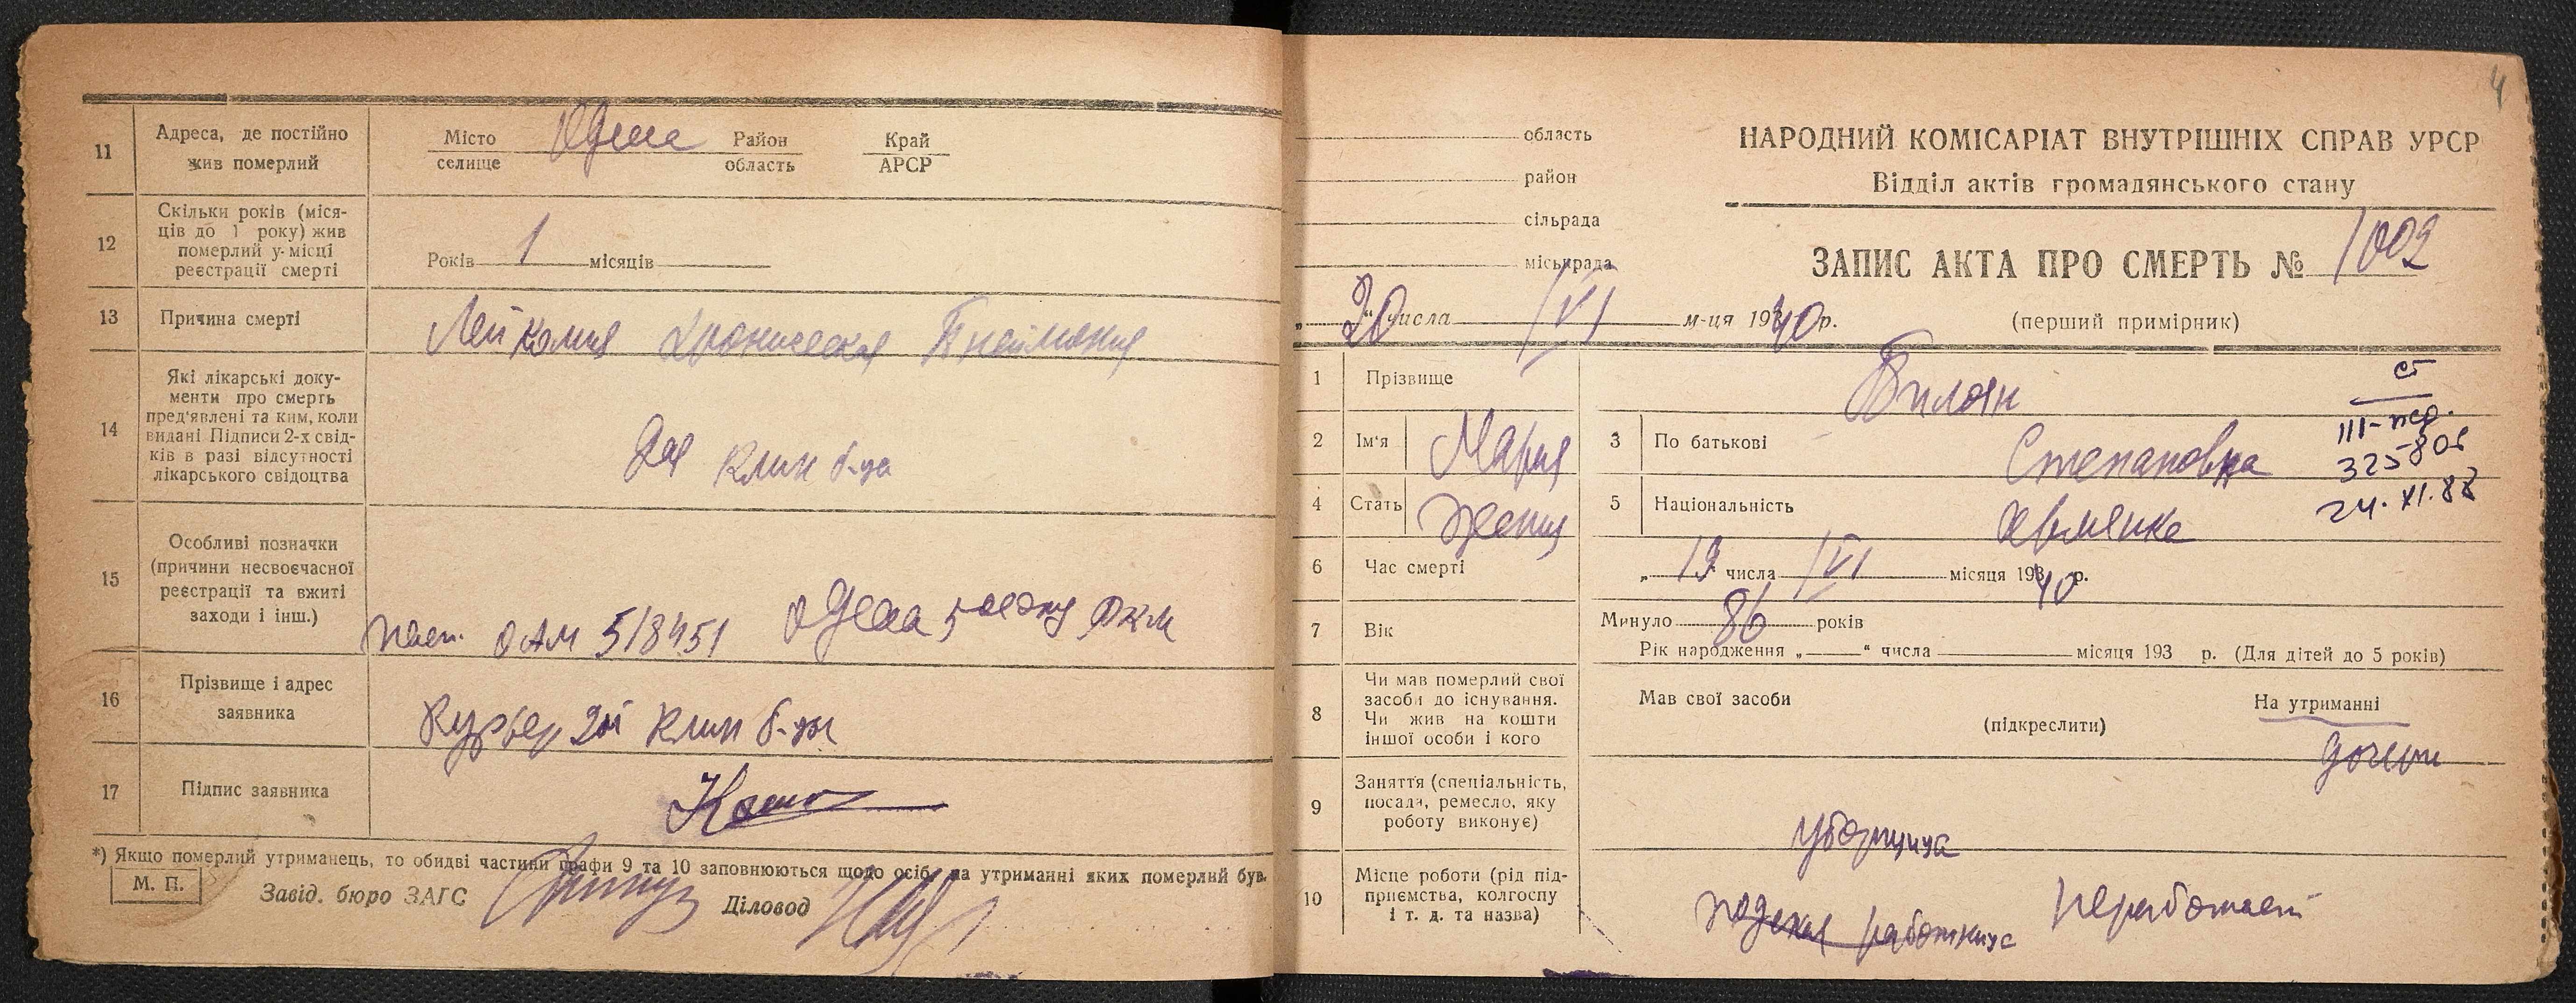 11
Адреса, де постійно
жив померлий
Місто
селище
Одеса
Район
область
Край
АРСР
12
Скільки років (міся-
ців до 1 року) жив
померлий у місці
реєстрації смерті
Років 1 місяців
13
Причина смерті
Лейкомия Хроническая Пнеймония
14
Які лікарські доку-
менти про смерть
пред'явлені та ким, коли
видані Підписи 2-х свід-
ків в разі відсутності
лікарського свідоцтва
2ая клин б-ца
15
Особливі позначки
(причини несвоєчасної
реєстрації та вжиті
заходи і інш.)
пасп. ОАМ 518451 Одеса 5 РКМ
16
Прізвище і адрес
заявника
Курьер 2ой клин б-цы
17
Підпис заявника
*) Якщо померлий утриманець, то обидві частини графи 9 та 10 заповнюються щодо осіб, на утриманні яких померлий був.
М. П.
Завід. бюро ЗАГС
Діловод
4
область
район
сільрада
міськрада
НАРОДНИЙ КОМІСАРІАТ ВНУТРІШНІХ СПРАВ УРСР
Відділ актів громадянського стану
ЗАПИС АКТА ПРО СМЕРТЬ № 1002
„20" числа VI м-ця 1940 р.
(перший примірник)
1
Прізвище
Билоян
III-пер.
325806
24.XI.88
2
Ім'я
Мария
3
По батькові
Степановна
4
Стать
Жения
5
Національність
6
Час смерті
„19 числа VI місяця 1940 р.
7
Вік
Минуло 86 років
Рік народження „ " числа місяця 193 р. (Для дітей до 5 років)
8
Чи мав померлий свої
засоби до існування.
Чи жив на кошти
іншої особи і кого
Мав свої засоби
(підкреслити)
На утриманні
дочери
9
Заняття (спеціальність,
посада, ремесло, яку
роботу виконує)
уборщица
10
Місце роботи (рід під-
приємства, колгоспу
і т. д. та назва)
работница неработает